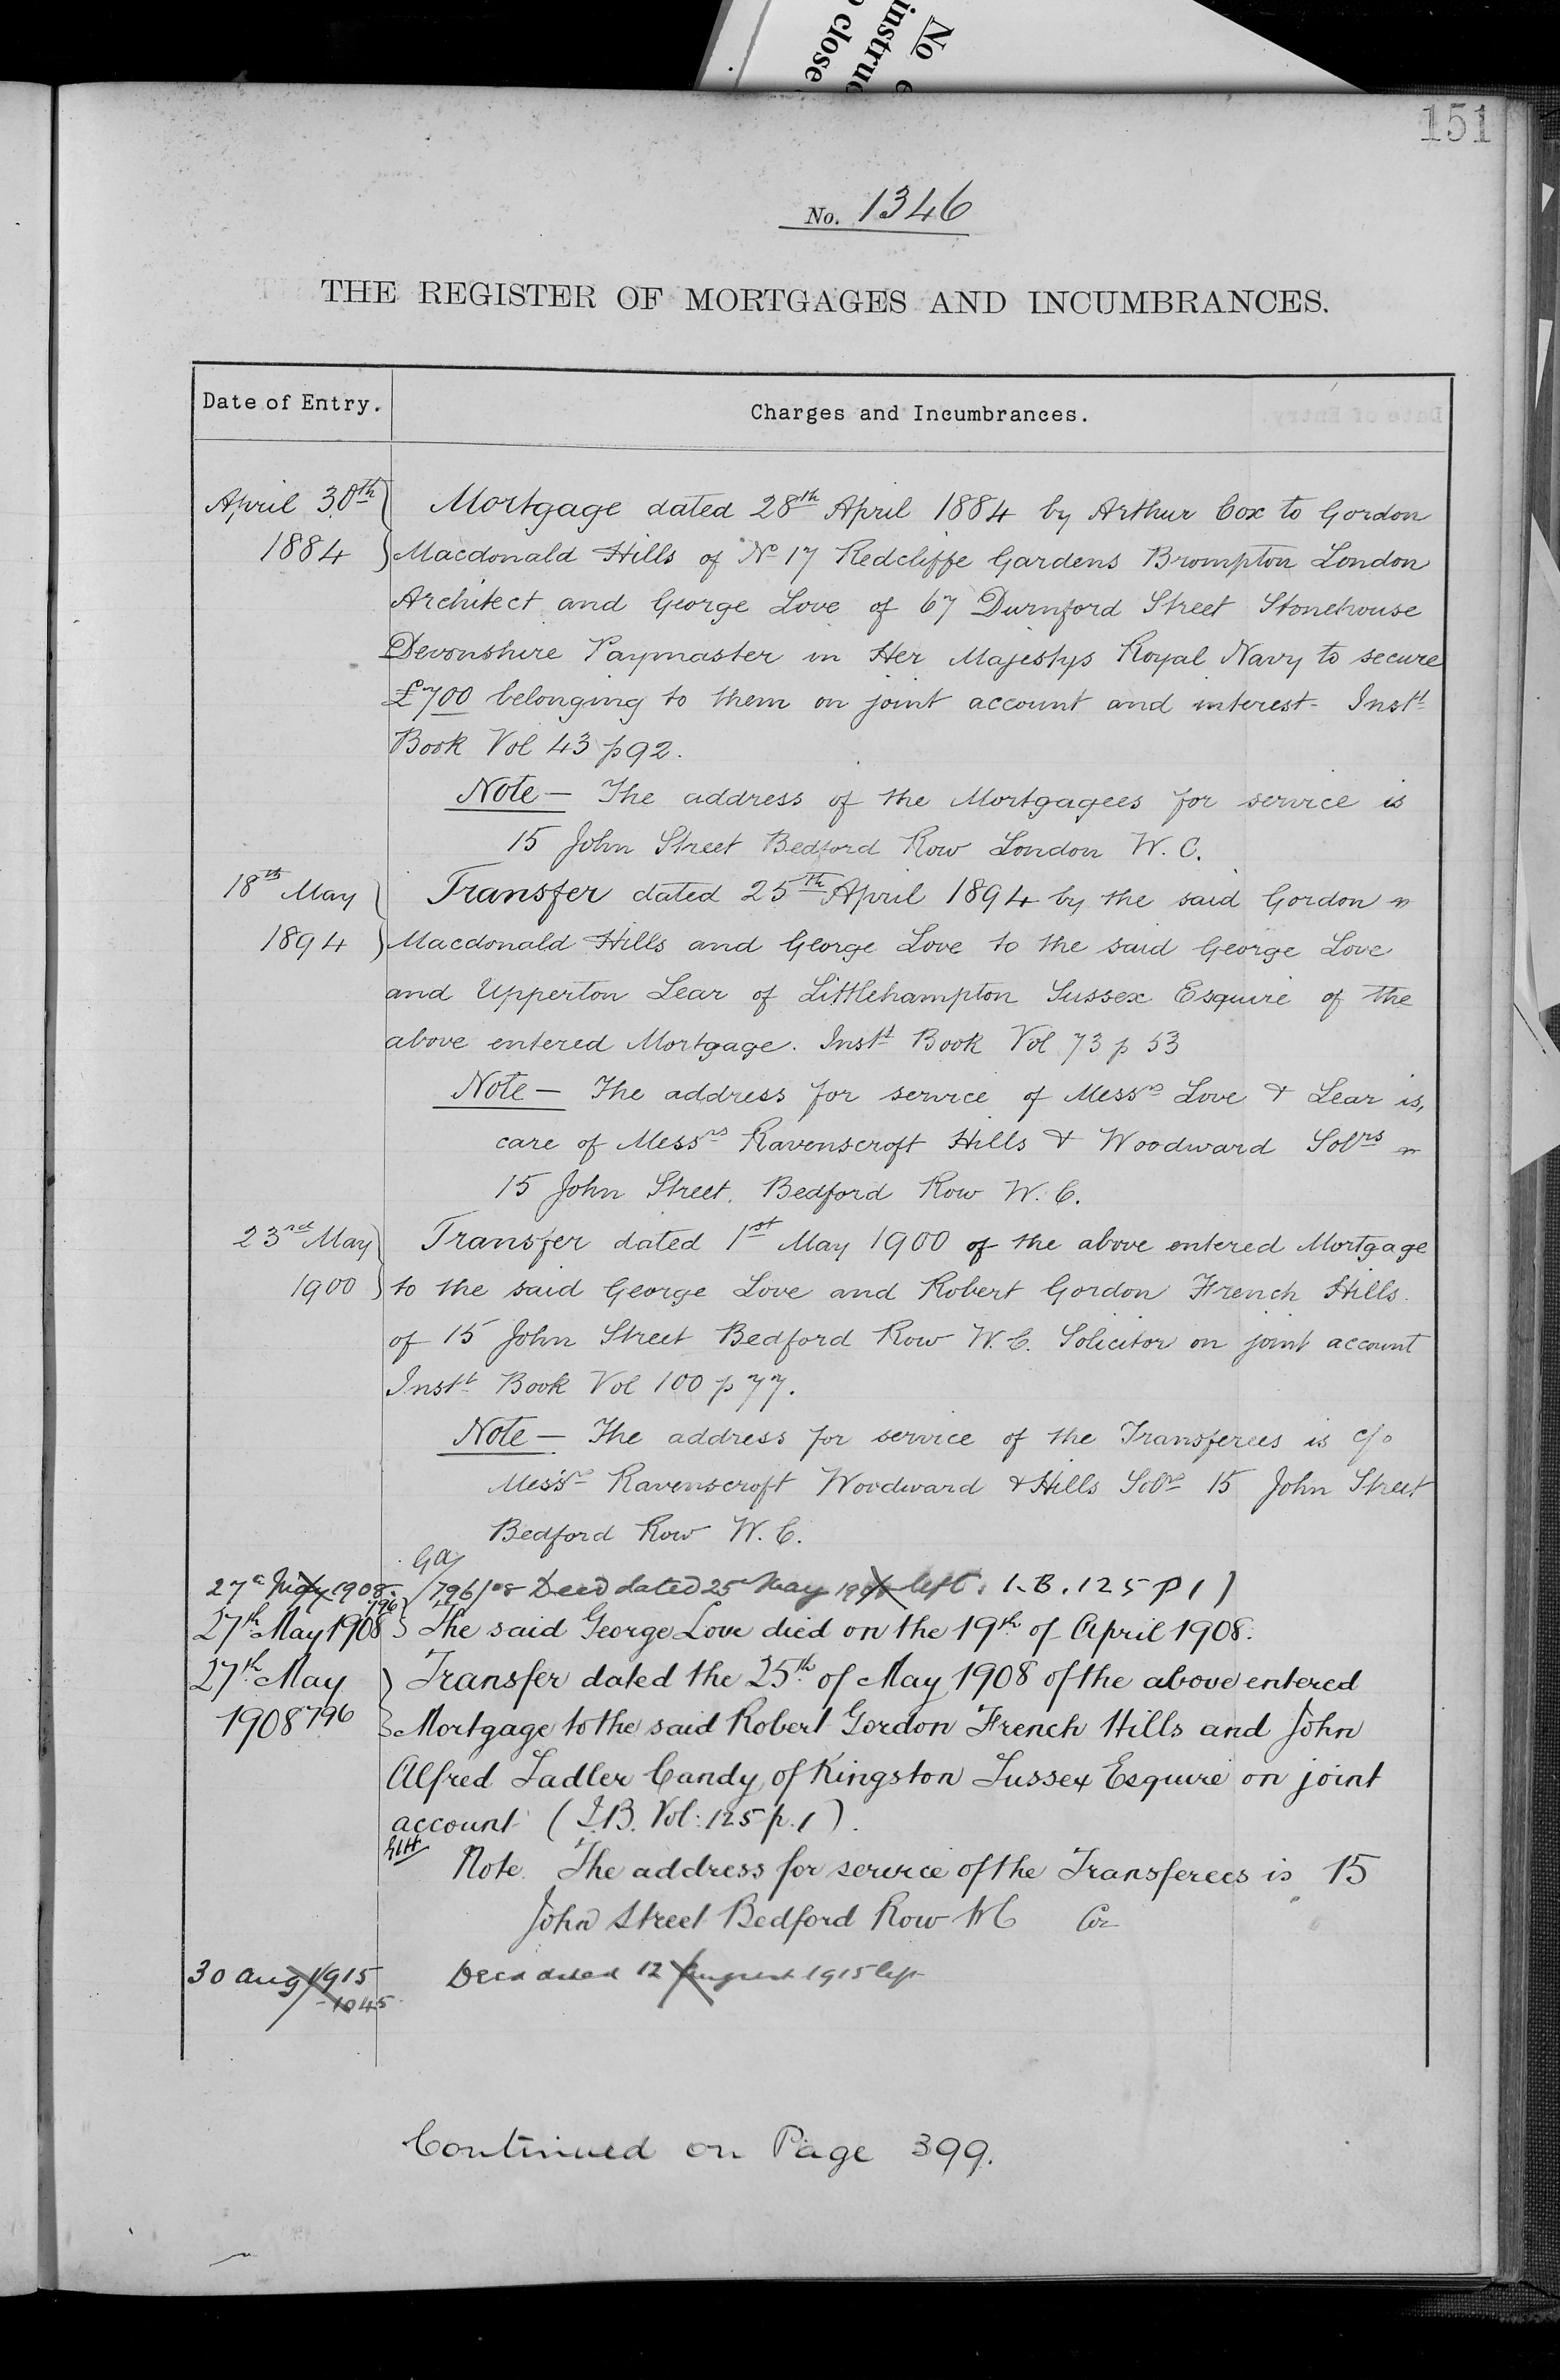 No
instruc
close
151
No. 1346
THE REGISTER OF MORTGAGES AND INCUMBRANCES.
Date of Entry.
Charges and Incumbrances.
April 30th Mortgage dated 28th April 1884 by Arthur Cox to Gordon
1884 Macdonald Hills of No 17 Redcliffe Gardens Brompton London
Architect and George Love of 67 Durnford Street Stonehouse
Devonshire Paymaster in Her Majestys Royal Navy to secure
£700 belonging to them on joint account and interest - Instt
Book Vol 43 p 92.
Note — The address of the Mortgagees for service is
15 John Street Bedford Row London W. C.
18th May Transfer dated 25th April 1894 by the said Gordon
1894 Macdonald Hills and George Love to the said George Love
and Upperton Lear of Littlehampton Sussex Esquire of the
above entered Mortgage. Instt Book Vol 73 p 53
Note — The address for service of Messrs Love & Lear is,
care of Messrs Ravenscroft Hills & Woodward Solrs
15 John Street. Bedford Row W. C.
23rd May Transfer dated 1st May 1900 of the above entered Mortgage
1900 to the said George Love and Robert Gordon Ffrench Hills.
of 15 John Street Bedford Row W. C. Solicitor on joint account
Instt Book Vol 100 p 77.
Note — The address for service of the Transferees is c/o
Messrs Ravenscroft Woodward & Hills Solrs 15 John Street
Bedford Row W. C.
27 May 1908. 796/08 Deed dated 25 May 1908 left. I.B. 125 p 1)
796
27th May 1908 The said George Love died on the 19th of April 1908.
27th May Transfer dated the 25th of May 1908 of the above entered
1908 796 Mortgage to the said Robert Gordon Ffrench Hills and John
Alfred Sadler Candy of Kingston Sussex Esquire on joint
account (I.B. Vol: 125 p. 1).
Note. The address for service of the Transferees is 15
John Street Bedford Row WC
30 Aug 1915 Deed dated 12 August 1915 left
- 1045
Continued on Page 399.